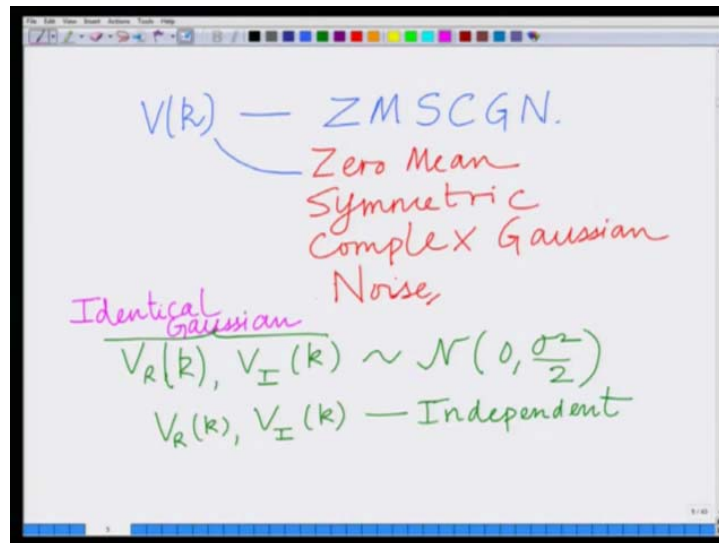 File Edit View Insert Actions Tools Help
V(k) — ZMSCGN.
Zero Mean
Symmetric
Complex Gaussian
Noise,,
Identical
Gaussian
V_R(k), V_I(k) ~ N(0, σ²/2)
V_R(k), V_I(k) — Independent
5